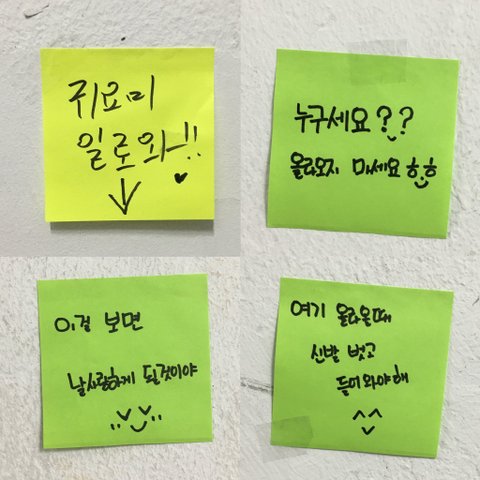 귀요미
일로와!!
누구세요??
올라오지 마세요ㅎㅎ
이걸 보면
날사랑하게 될것이야
여기 올라올때
신발 벗고
들어와야해
^^